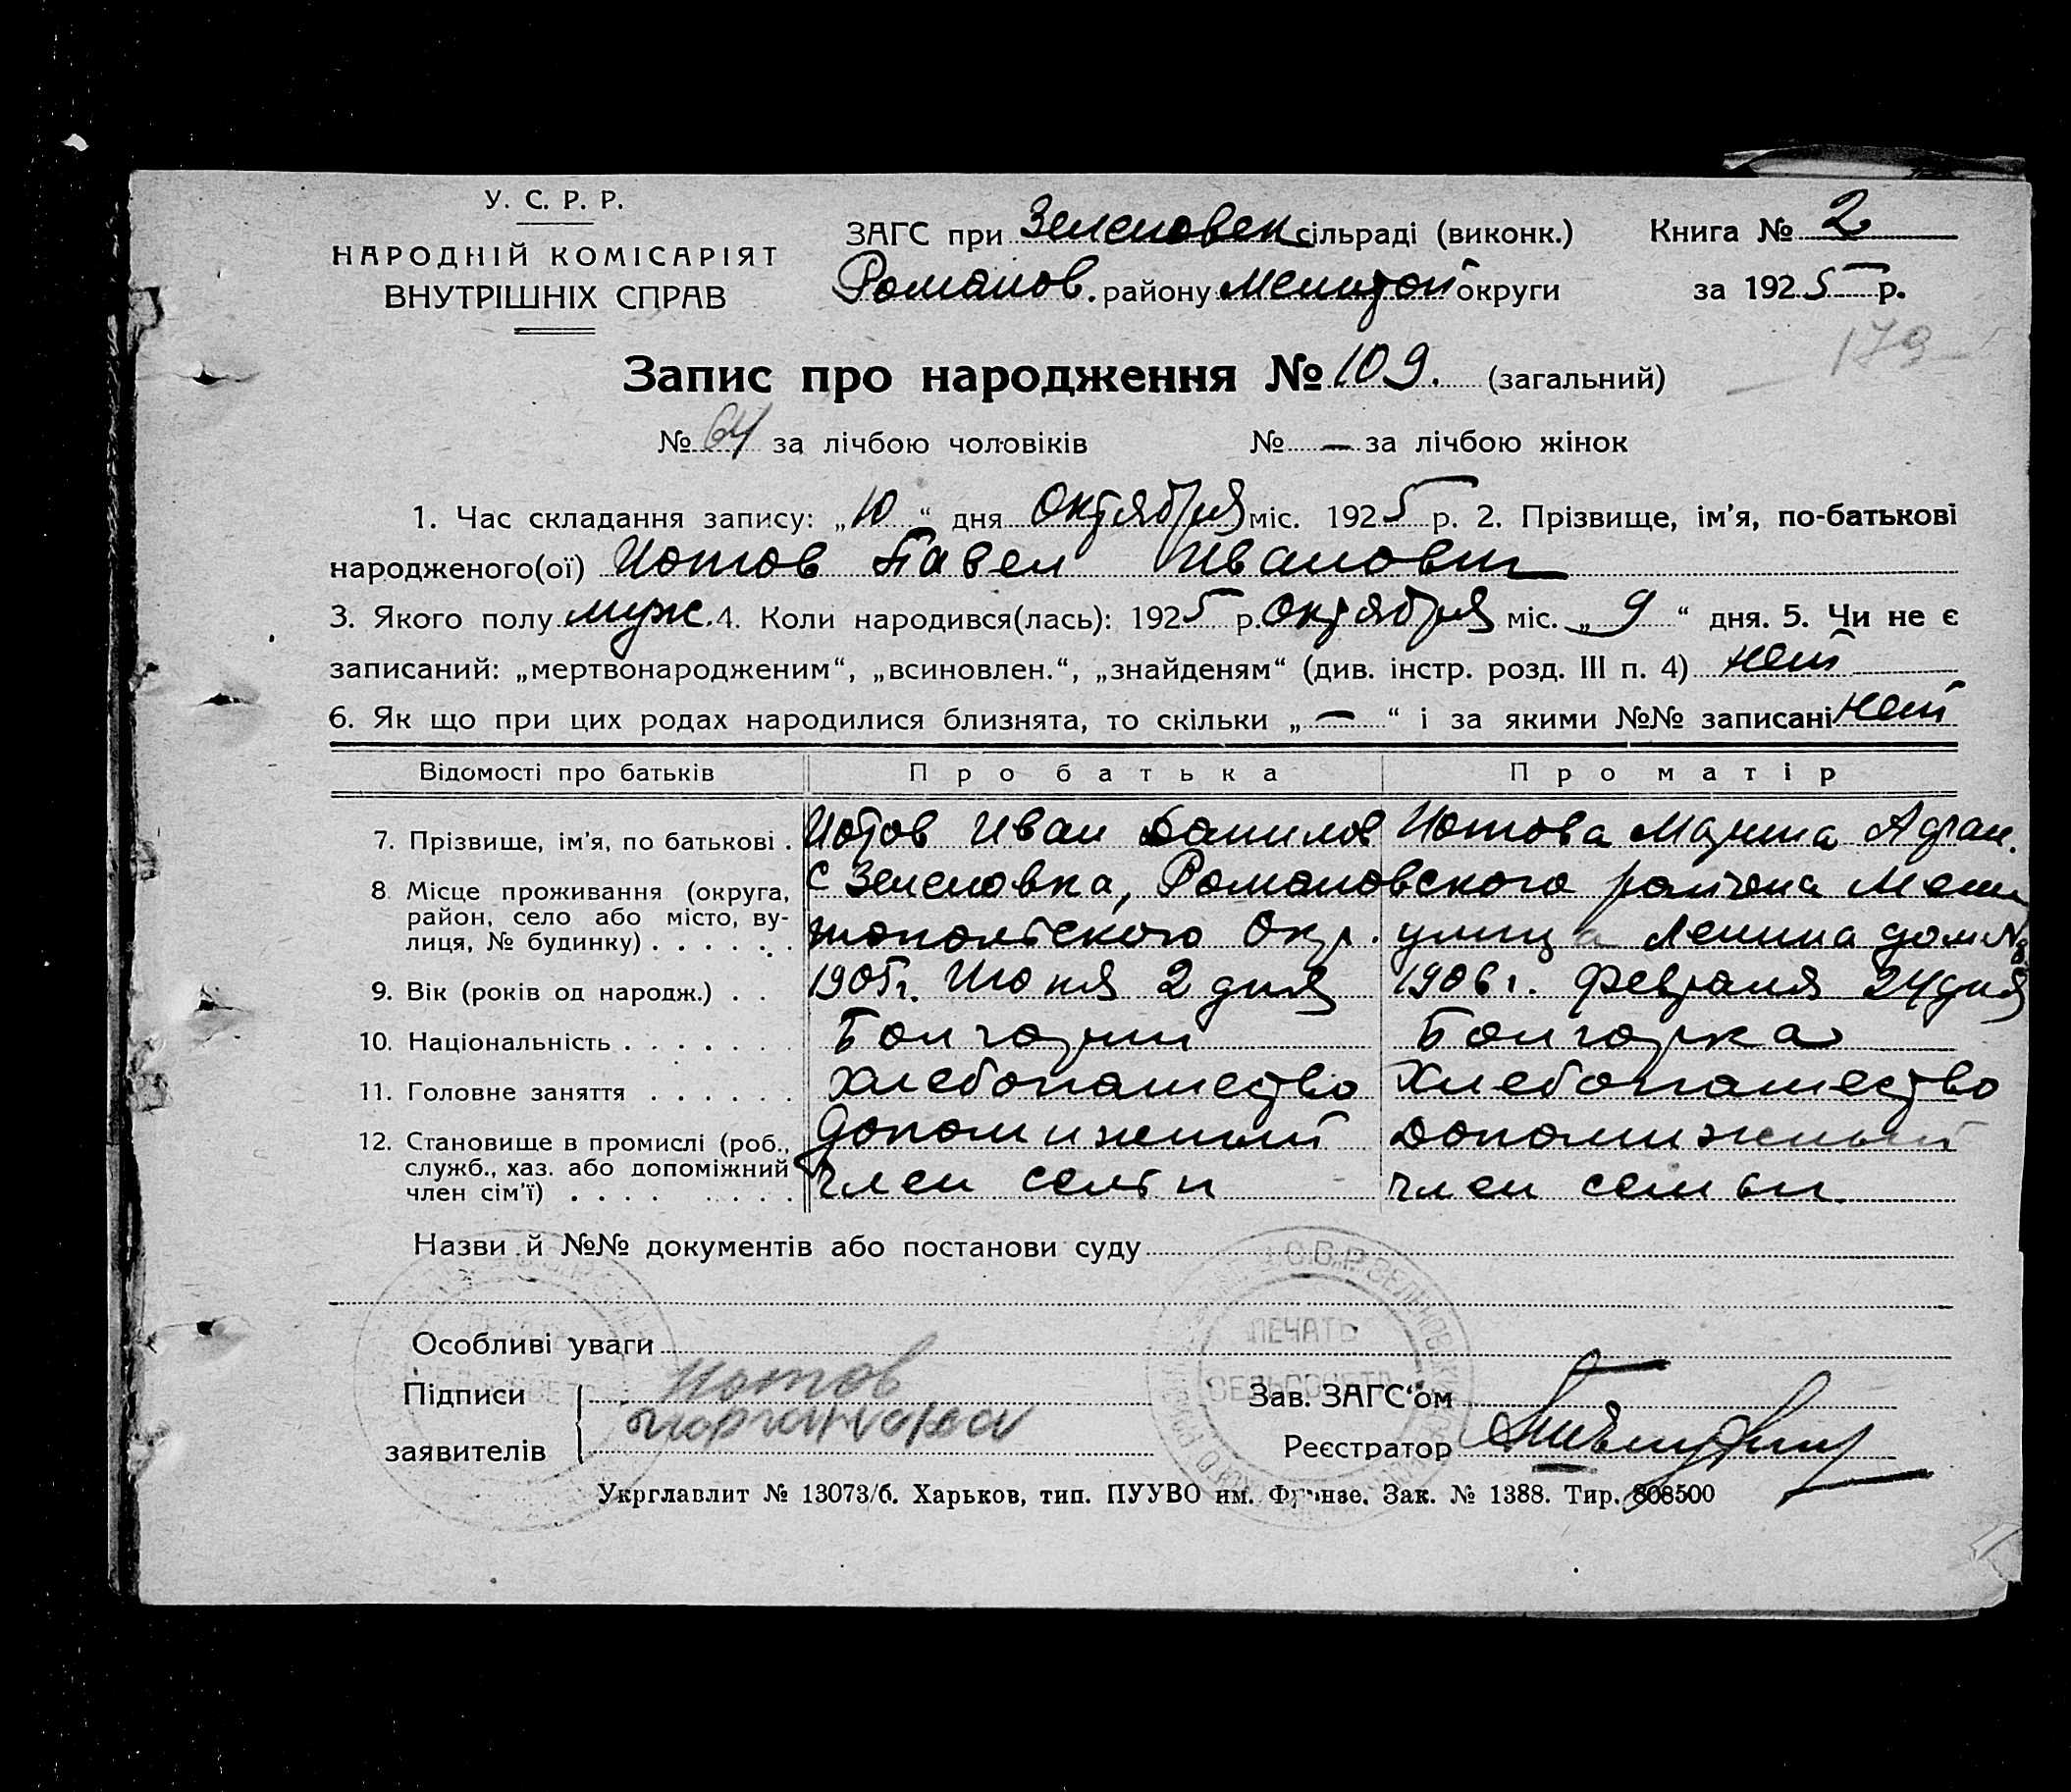 У. С. Р. Р.
НАРОДНІЙ КОМІСАРІЯТ
ВНУТРІШНІХ СПРАВ
ЗАГС при Зеленовск сільраді (виконк.)
Романов. району Мелитоп округи
Книга № 2
за 1925 р.
179
Запис про народження № 109. (загальний)
№ 64 за лічбою чоловіків № — за лічбою жінок
1. Час складання запису: „10“ дня Октября міс. 1925 р. 2. Прізвище, ім’я, по-батькові
народженого(ої) Иотов Павел Иванович
3. Якого полу муж. 4. Коли народився(лась): 1925 р. Октября міс. „9“ дня. 5. Чи не є
записаний: „мертвонародженим“, „всиновлен.“, „знайденям“ (див. інстр. розд. III п. 4) нет
6. Як що при цих родах народилися близнята, то скільки „—“ і за якими №№ записані нет
Відомості про батьків Про батька Про матір
7. Прізвище, ім’я, по батькові . Иотов Иван Данилов Иотова Марина
8 Місце проживання (округа, район, село або місто, вулиця, № будинку) . . . . . . с Зеленовка, Романовского района Мели
топольского Окр. улица Ленина дом №
9. Вік (років од народж.) . . 1905 г. Июня 2 дня 1906 г. Февраля 24 дня
10. Національність . . . . . . . Болгарин Болгарка
11. Головне заняття . . . . . . Хлебопашество Хлебопашество
12. Становище в промислі (роб., служб., хаз. або допоміжний член сім’ї) . . . . . . . . . Допомижный Допомижный
член семьи член семьи
Назви й №№ документів або постанови суду
Особливі уваги
Підписи
заявителів
Иотов
Зав. ЗАГС‘ом
Реєстратор
ПЕЧАТЬ
СЕЛЬСОВЕТА
Укрглавлит № 13073/б. Харьков, тип. ПУУВО им. Фрунзе. Зак. № 1388. Тир. 808500